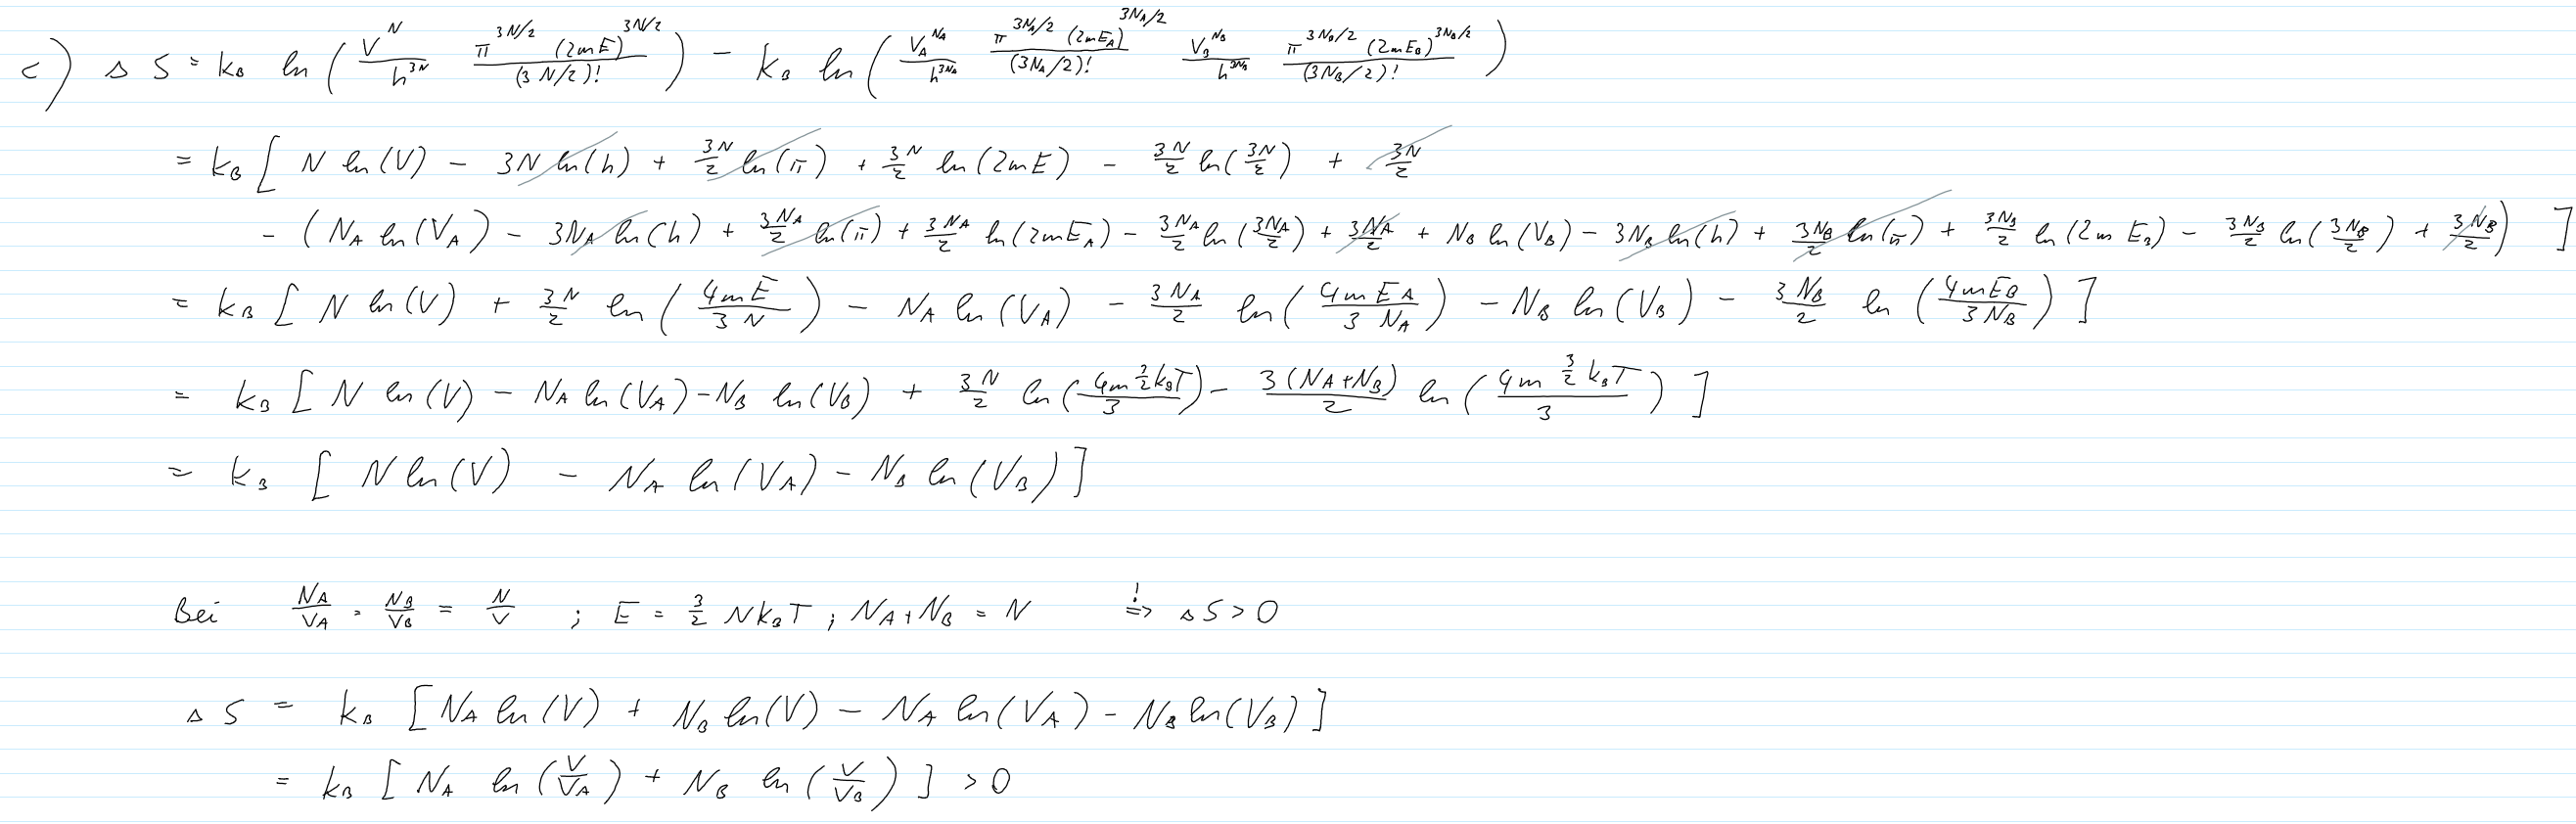 c) Δ S = k_B ln( V^N / h^{3N} π^{3N/2} (2mE)^{3N/2} / (3N/2)! ) - k_B ln( V_A^{N_A} / h^{3N_A} π^{3N_A/2} (2mE_A)^{3N_A/2} / (3N_A/2)! V_B^{N_B} / h^{3N_B} π^{3N_B/2} (2mE_B)^{3N_B/2} / (3N_B/2)! )
= k_B [ N ln(V) - 3N ln(h) + 3N/2 ln(π) + 3N/2 ln(2mE) - 3N/2 ln(3N/2) + 3N/2
- ( N_A ln(V_A) - 3N_A ln(h) + 3N_A/2 ln(π) + 3N_A/2 ln(2mE_A) - 3N_A/2 ln(3N_A/2) + 3N_A/2 + N_B ln(V_B) - 3N_B ln(h) + 3N_B/2 ln(π) + 3N_B/2 ln(2mE_B) - 3N_B/2 ln(3N_B/2) + 3N_B/2 ) ]
= k_B [ N ln(V) + 3N/2 ln( 4mE / 3N ) - N_A ln(V_A) - 3N_A/2 ln( 4mE_A / 3N_A ) - N_B ln(V_B) - 3N_B/2 ln( 4mE_B / 3N_B ) ]
= k_B [ N ln(V) - N_A ln(V_A) - N_B ln(V_B) + 3N/2 ln( 4m 3/2 k_B T / 3 ) - 3(N_A+N_B)/2 ln( 4m 3/2 k_B T / 3 ) ]
= k_B [ N ln(V) - N_A ln(V_A) - N_B ln(V_B) ]
Bei N_A/V_A = N_B/V_B = N/V ; E = 3/2 N k_B T ; N_A + N_B = N !⇒ Δ S > 0
Δ S = k_B [ N_A ln(V) + N_B ln(V) - N_A ln(V_A) - N_B ln(V_B) ]
= k_B [ N_A ln( V/V_A ) + N_B ln( V/V_B ) ] > 0